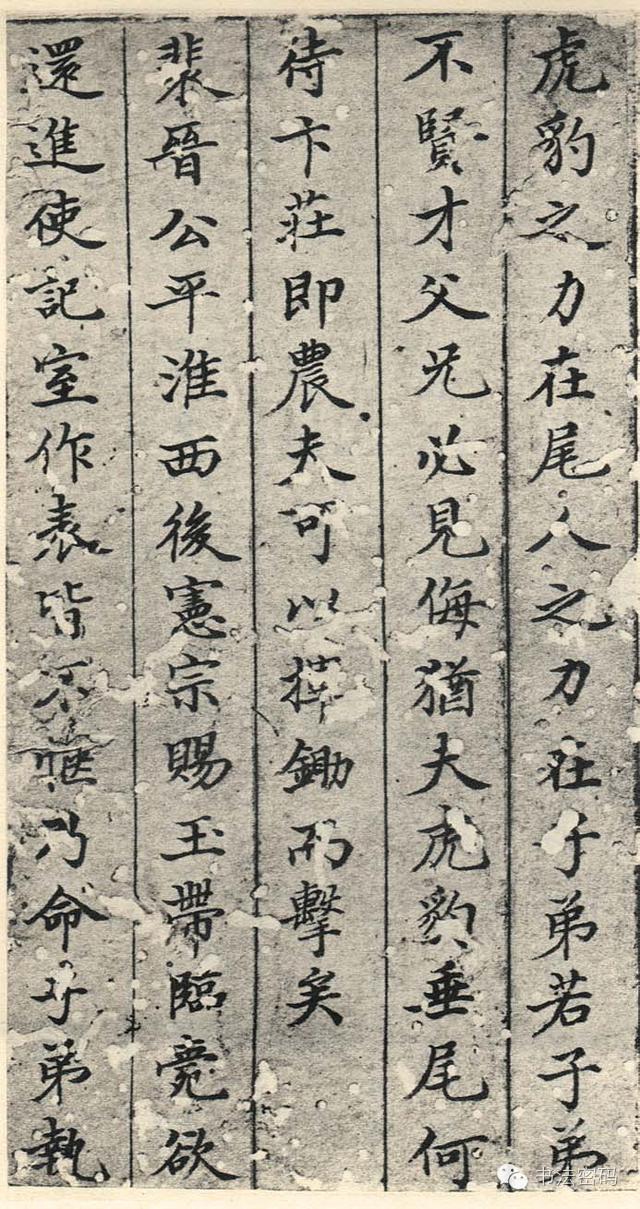 虎豹之力在尾人之力在子弟若子弟
不賢才父兄必見侮猶夫虎豹垂尾何
待卞莊即農夫可以揮鋤而擊矣
裴晉公平淮西後憲宗賜玉帶臨薨欲
還進使記室作表皆不愜乃命子弟執
书法密码